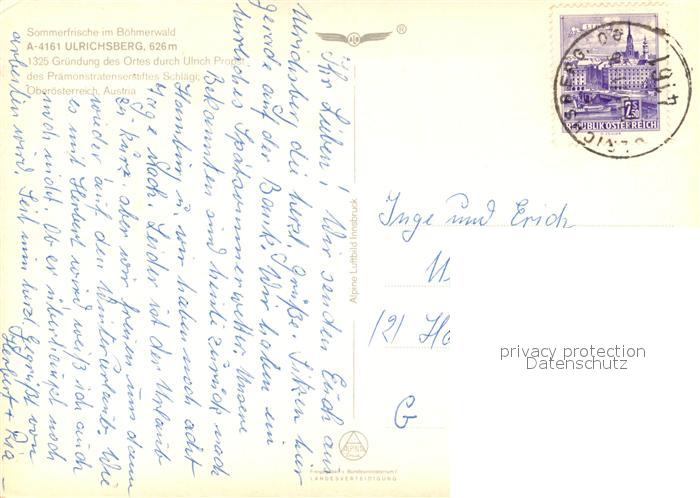 Sommerfrische im Böhmerwald
A-4161 ULRICHSBERG, 626m
1325 Gründung des Ortes durch Ulrich Propst
des Prämonstratenserstiftes Schlägl,
Oberösterreich, Austria
Ihr Lieben! Wir senden Euch aus
Ulrichsbg. die herzl. Grüße. Sitzen hier
gerade auf der Bank. Wir haben ein
herrliches Spätsommerwetter. Unsere
Bekannten sind heute zurück nach
Hamburg u. wir haben noch acht
Tage Nach. Leider ist der Urlaub
zu kurz, aber wir freuen uns dann
wieder auf den Winterurlaub. Wie
es mit Herbert wird weiß ich auch
noch nicht. Ob er überhaupt noch
arbeiten wird. Seit nun herzl. gegrüßt von
Herbert + Ria
Alpine Luftbild Innsbruck
2S50
REPUBLIK ÖSTERREICH
4161
Inge und Erich
121 Ha
G
privacy protection
Datenschutz
ALPINE
Freigegeben v. Bundesministerium f.
LANDESVERTEIDIGUNG